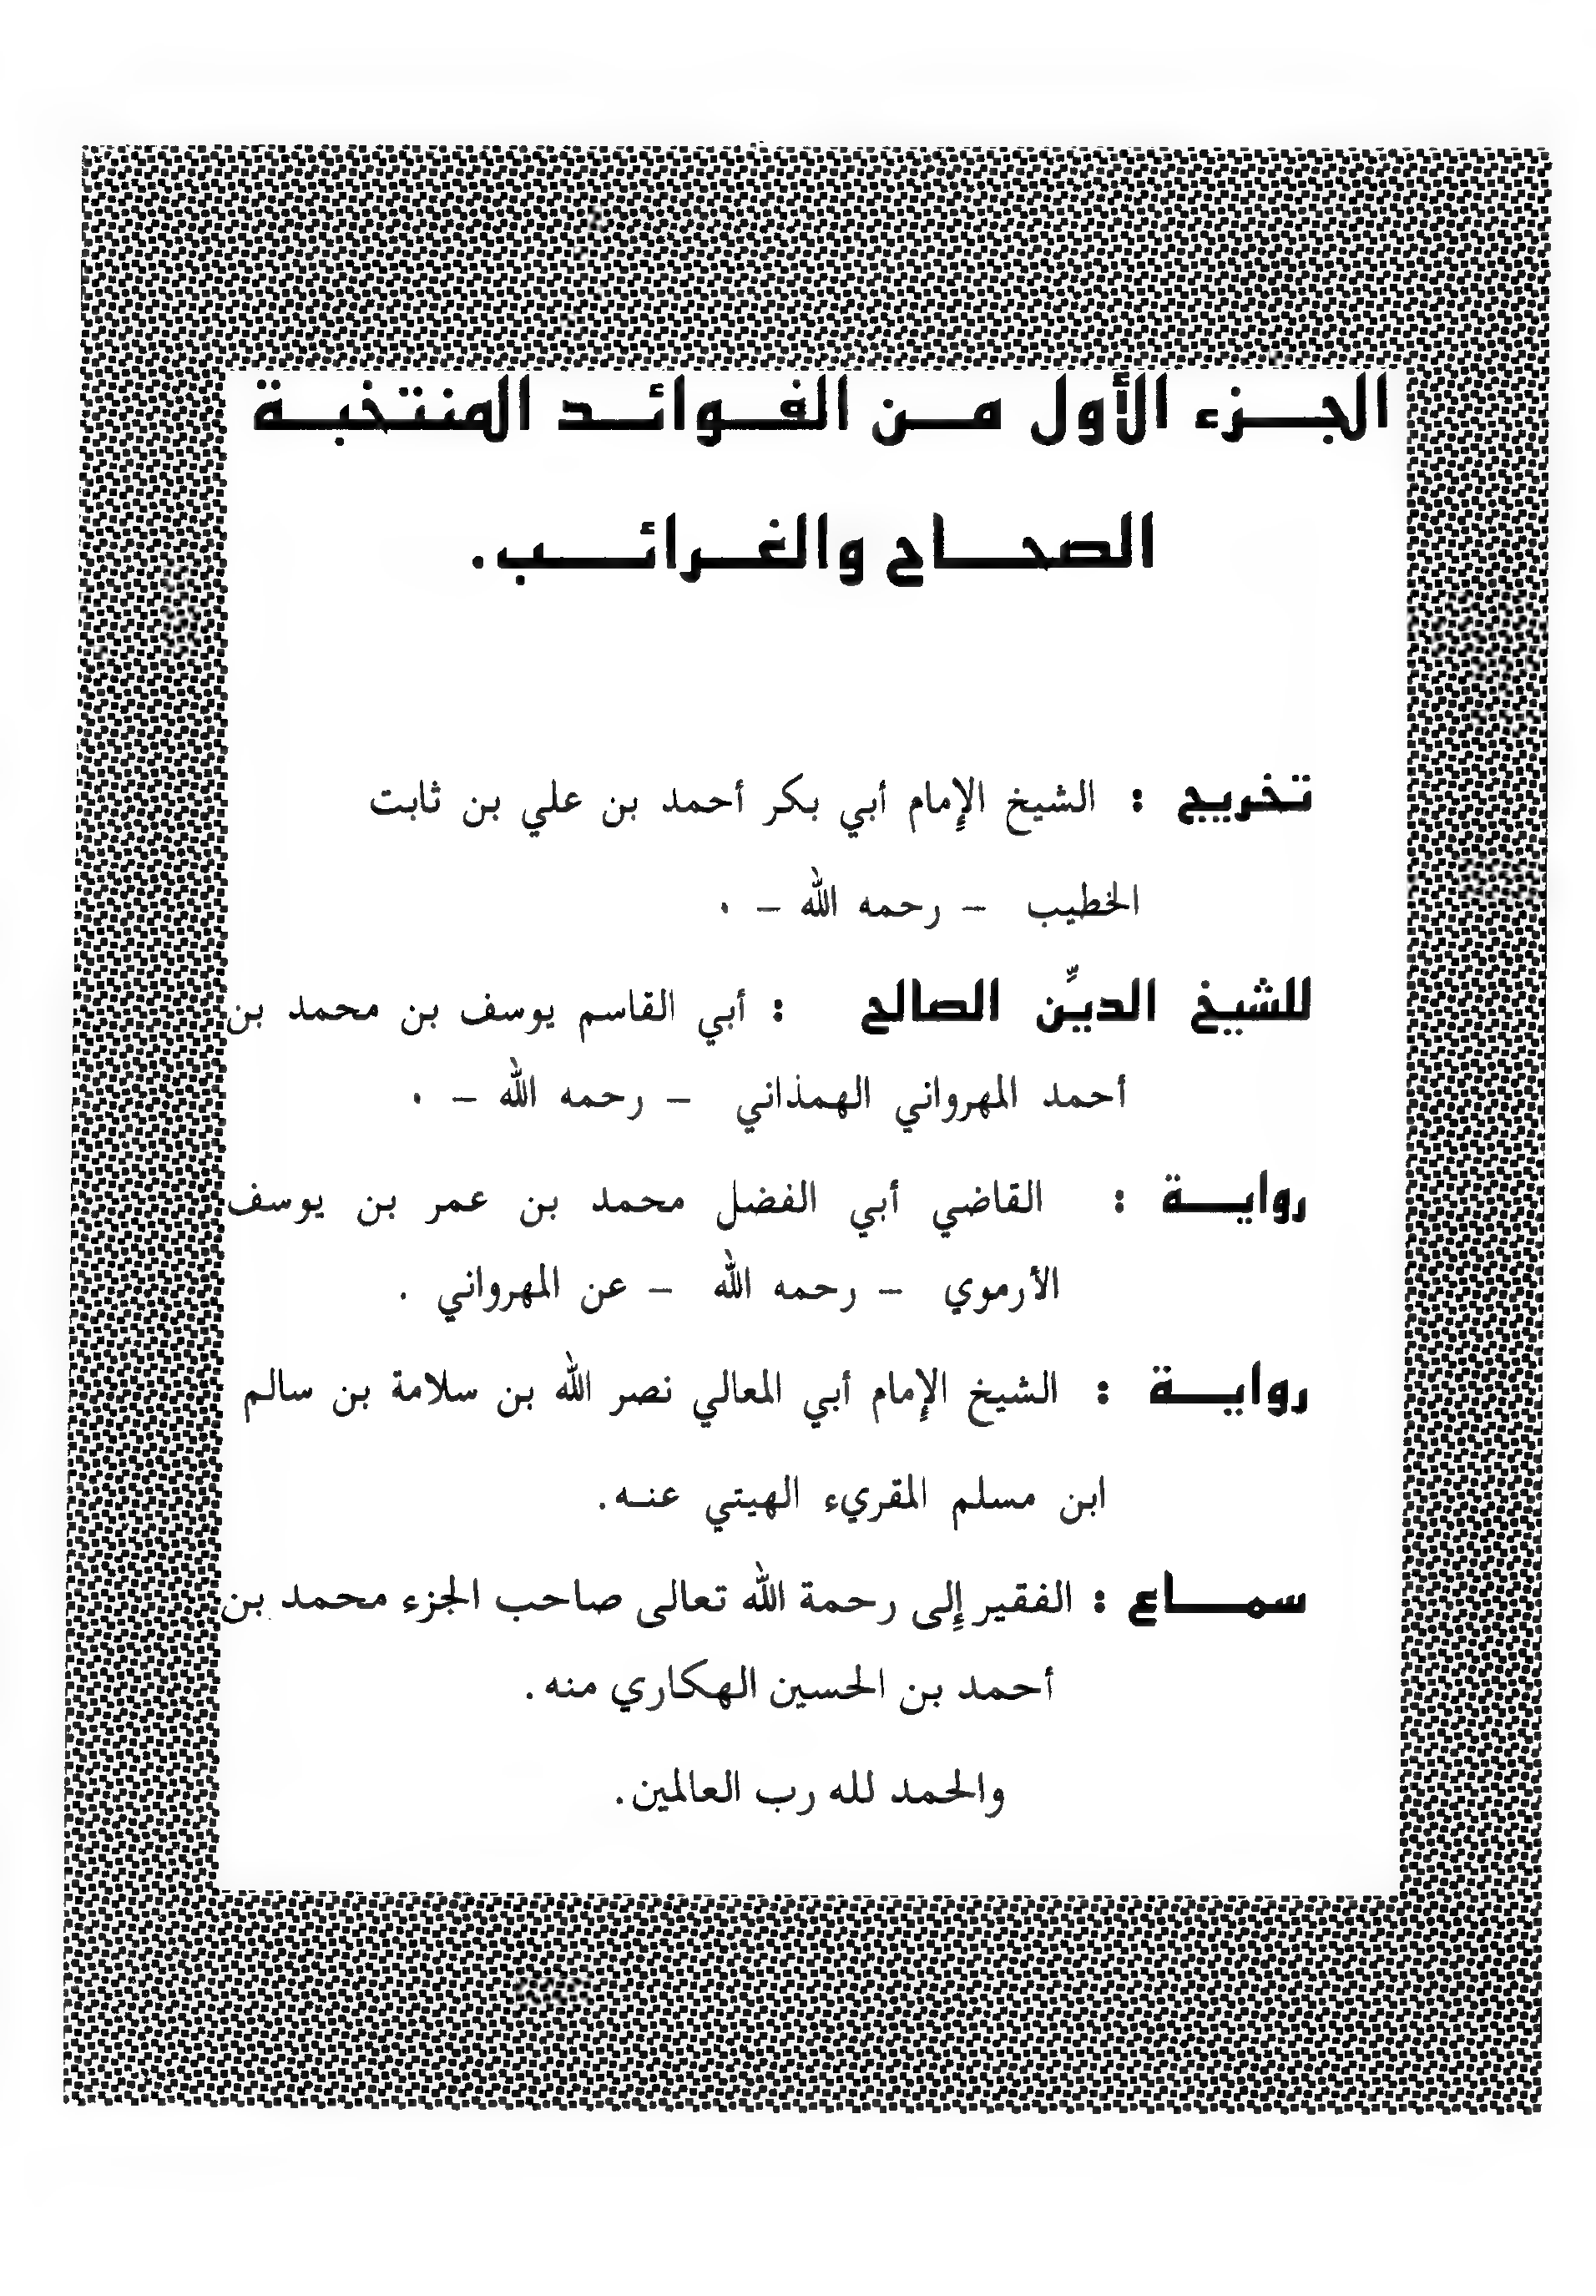 الجزء الأول من الفوائد المنتخبة
الصحاح والغرائب.
تخريج : الشيخ الإمام أبي بكر أحمد بن علي بن ثابت
الخطيب - رحمه الله - .
للشيخ الديِّن الصالح : أبي القاسم يوسف بن محمد بن
أحمد المهرواني الهمذاني - رحمه الله - .
رواية : القاضي أبي الفضل محمد بن عمر بن يوسف
الأرموي - رحمه الله - عن المهرواني .
رواية : الشيخ الإمام أبي المعالي نصر الله بن سلامة بن سالم
ابن مسلم المقريء الهيتي عنه.
سماع : الفقير إلى رحمة الله تعالى صاحب الجزء محمد بن
أحمد بن الحسين الهكاري منه .
والحمد لله رب العالمين.